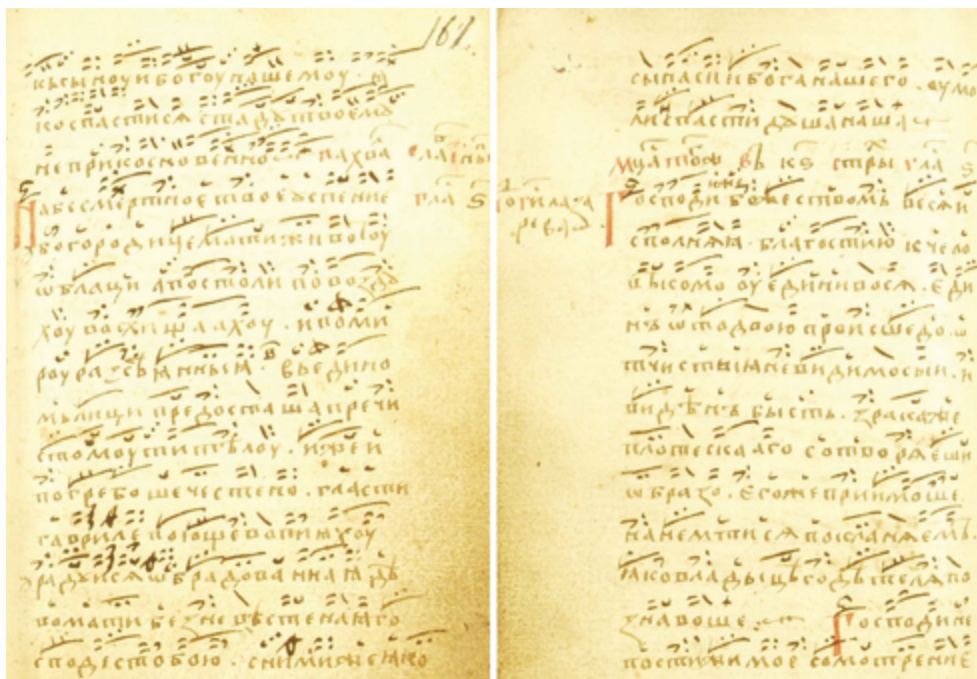 167.
къ сыноу и богоу нашемоу.
спастися стадꙋ твоемꙋ
не прикосновенно
гла ѕ
На бесмертное твое ꙋспение
богородице мати животоу
ѡблаци апостоли по воздꙋ
хоу восхищаахоу . и по ми
роу
въ едино
мь лици предосташа пречи
стомоу ти тѣлоу . иже и
погребоше честено . гласти
гавриле поюще вопиюхоу
радꙋися ѡбрадованная дѣ
во мати без невѣстеная го
сподь с тобою . с нимиже яко
сына си и бога нашего . ѹмо
ли спастн дꙋша наша
въ кѕ гла ѕ
Господи божествомь вся и
сполняя . благостию к чело
единивося . еди
нъ ѡт двою происшедо . ѡ
невидимо сыи . и
видѣнъ бысть . зракаже
плотеска аго сотворяеши
ѡбразо . егоже приимоше .
на немь ти ся покланяемъ .
яко владыцѣ содѣтеля по
знавоше . Господи не
постижимое сомотрение